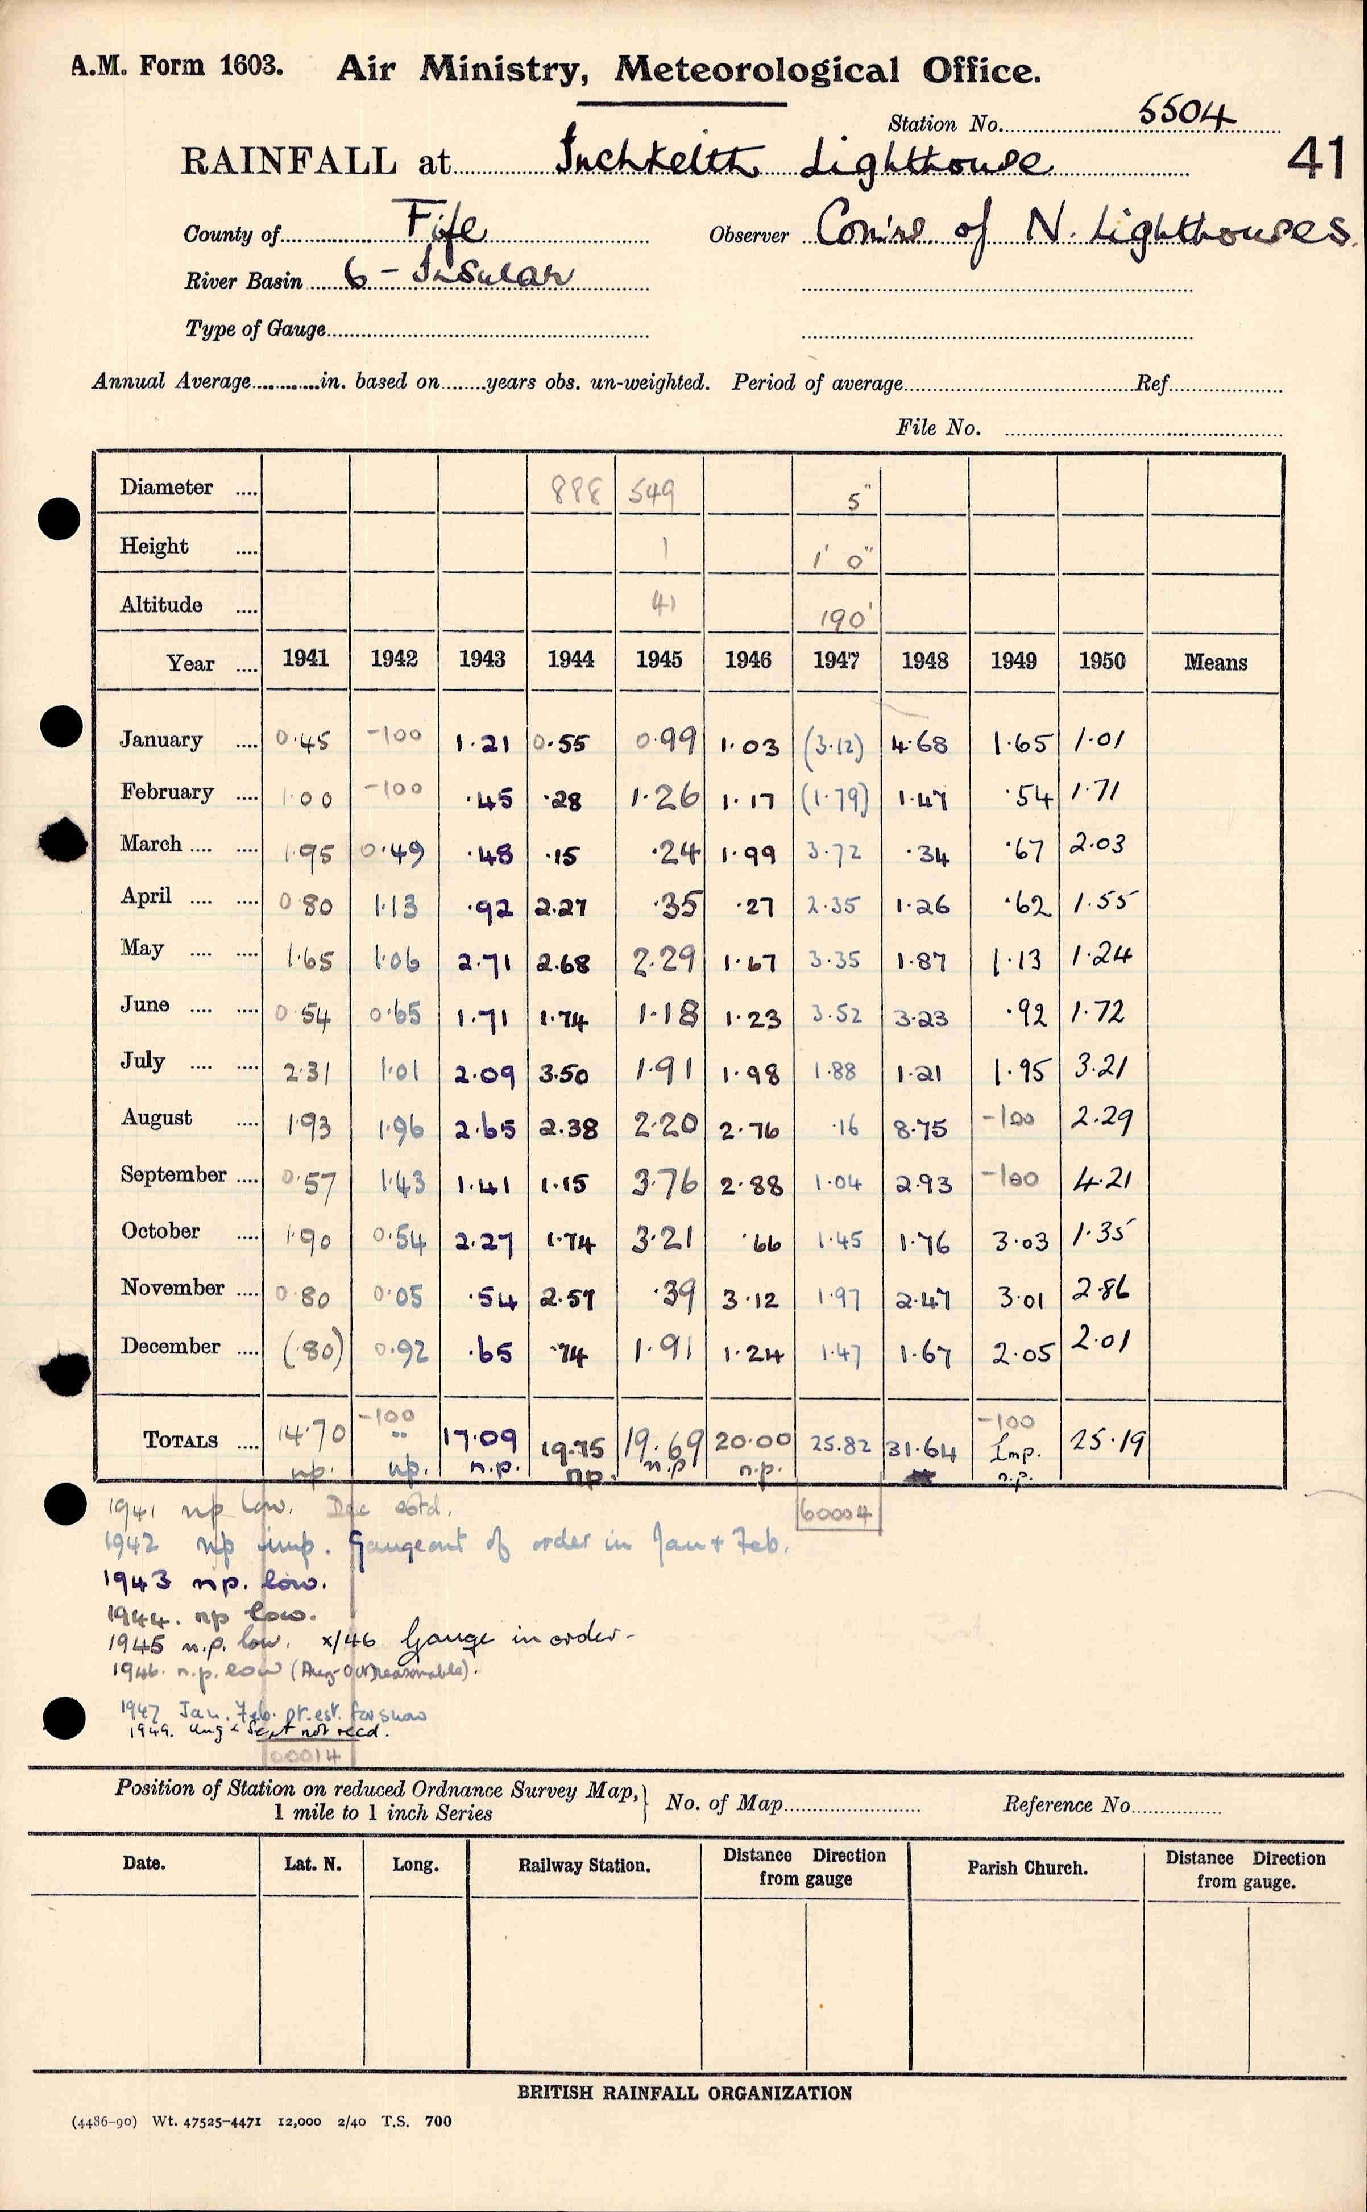 A.M. Form 1603. Air Ministry, Meteorological Office.
Station No. 5504
41
RAINFALL at Inchkeith Lighthouse
County of Fife Observer Com'rs of N. Lighthouses
River Basin 6 - Insular
Type of Gauge
Annual Average in. based on years obs. un-weighted. Period of average Ref
File No.
Diameter .... 888 549 5"
Height .... 1 1' 0"
Altitude .... 41 190'
Year .... 1941 1942 1943 1944 1945 1946 1947 1948 1949 1950 Means
January .... 0.45 -100 1.21 0.55 0.99 1.03 (3.12) 4.68 1.65 1.01
February .... 1.00 -100 .45 .28 1.26 1.17 (1.79) 1.47 .54 1.71
March .... .... 1.95 0.49 .48 .15 .24 1.99 3.72 .34 .67 2.03
April .... .... 0.80 1.13 .92 2.27 .35 .27 2.35 1.26 .62 1.55
May .... .... 1.65 1.06 2.71 2.68 2.29 1.67 3.35 1.87 1.13 1.24
June .... .... 0.54 0.65 1.71 1.74 1.18 1.23 3.52 3.23 .92 1.72
July .... .... 2.31 1.01 2.09 3.50 1.91 1.98 1.88 1.21 1.95 3.21
August .... 1.93 1.96 2.65 2.38 2.20 2.76 .16 8.75 -100 2.29
September .... 0.57 1.43 1.41 1.15 3.76 2.88 1.04 2.93 -100 4.21
October .... 1.90 0.54 2.27 1.74 3.21 .66 1.45 1.76 3.03 1.35
November .... 0.80 0.05 .54 2.57 .39 3.12 1.97 2.47 3.01 2.86
December .... (.80) 0.92 .65 .74 1.91 1.24 1.47 1.67 2.05 2.01
TOTALS .... 14.70 -100 17.09 19.75 19.69 20.00 25.82 31.64 -100 Imp. 25.19
np. np. n.p. np. n.p n.p. n.p.
1941 np low. Dec estd. 60004
1942 np imp. Gauge out of order in Jan + Feb.
1943 np. low.
1944. np low.
1945 n.p. low. x/46 Gauge in order.
1946. n.p. low (Aug-Oct reasonable).
1947 Jan. Feb. pt. est. for snow
1949. Aug + Sept not recd.
00014
Position of Station on reduced Ordnance Survey Map, 1 mile to 1 inch Series } No. of Map Reference No
Date. Lat. N. Long. Railway Station. Distance Direction from gauge Parish Church. Distance Direction from gauge.
BRITISH RAINFALL ORGANIZATION
(4486-90) Wt. 47525-4471 12,000 2/40 T.S. 700